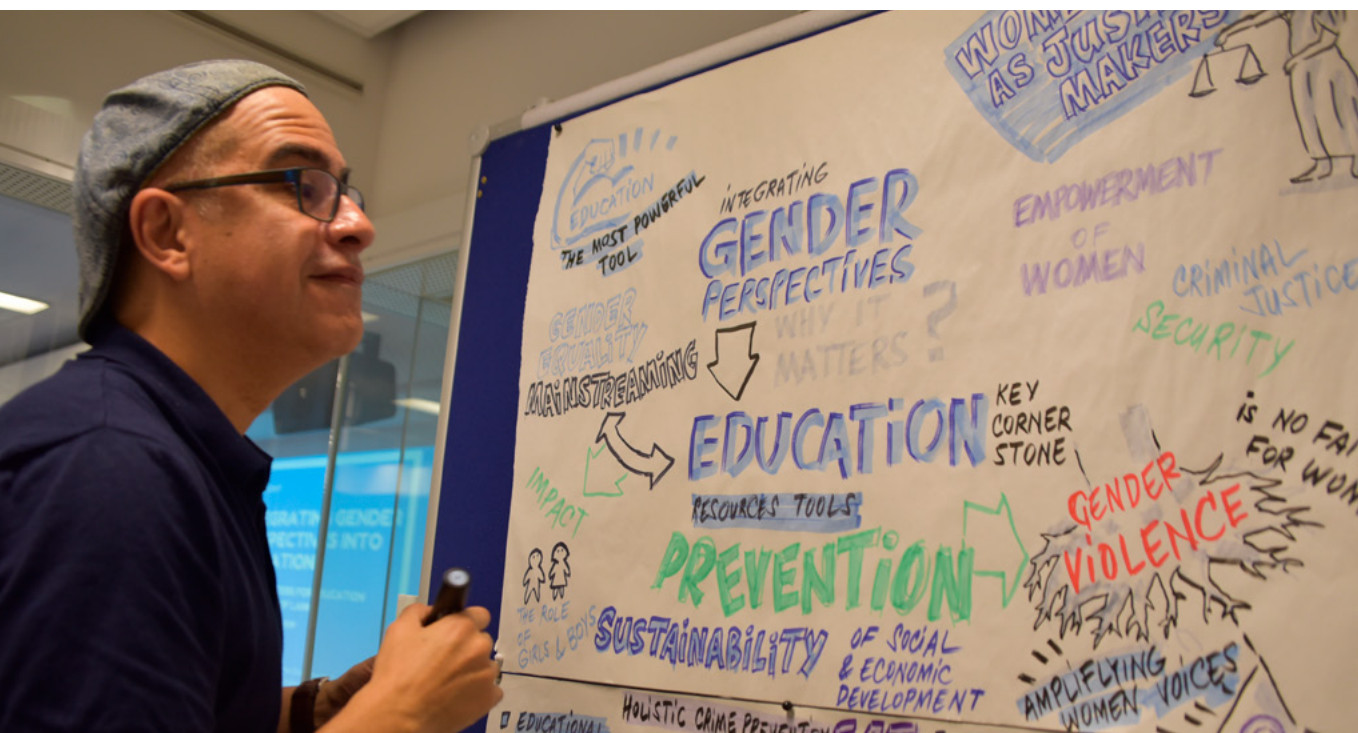 WOMEN
AS JUSTICE
MAKERS
EDUCATION
THE MOST POWERFUL
TOOL
iNTEGRATiNG
GENDER
PERSPECTiVES
WHY iT
MATTERS ?
EMPOWERMENT
OF
WOMEN
CRiMiNAL
JUSTiCE
SECURiTY
GENDER
EQUALiTY
MAiNSTREAMiNG
EDUCATiON
KEY
CORNER
STONE
iS NO FAi
FOR WOM
RESOURCES TOOLS
iMPACT
PREVENTiON
GENDER
ViOLENCE
THE ROLE
OF
GiRLS & BOYS
SUSTAiNABiLiTY
OF SOCiAL
& ECONOMiC
DEVELOPMENT
AMPLiFLYiNG
WOMEN VOiCES
EDUCATiONAL
HOLiSTiC CRiME PREVENTiON
GRATING GENDER
PECTIVES INTO
ATION